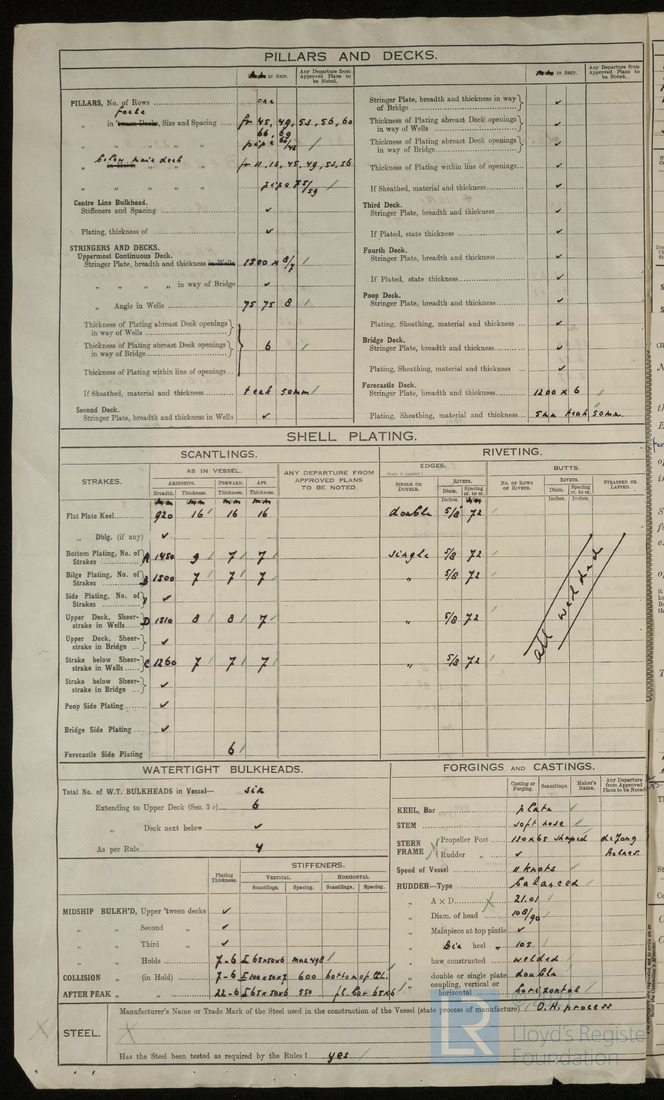 PILLARS AND DECKS.
mm IN SHIP.
Any Departure from Approved Plans to be Noted.
PILLARS, No. of Rows
one
focle
" in 'tween Decks, Size and Spacing
fr 45, 49, 53, 56, 60
66, 69
pipe
" below main deck
fr 11, 13, 45, 49, 53, 56
pipe 75/59
Centre Line Bulkhead.
Stiffeners and Spacing ✓
Plating, thickness of ✓
STRINGERS AND DECKS.
Uppermost Continuous Deck.
Stringer Plate, breadth and thickness in Wells 1500 x 8/7
" " " " in way of Bridge ✓
" Angle in Wells 75 75 8
Thickness of Plating abreast Deck openings in way of Wells
Thickness of Plating abreast Deck openings in way of Bridge 6
Thickness of Plating within line of openings
If Sheathed, material and thickness teak 50mm
Second Deck.
Stringer Plate, breadth and thickness in Wells ✓
mm IN SHIP.
Any Departure from Approved Plans to be Noted.
Stringer Plate, breadth and thickness in way of Bridge ✓
Thickness of Plating abreast Deck openings in way of Wells ✓
Thickness of Plating abreast Deck openings in way of Bridge ✓
Thickness of Plating within line of openings ✓
If Sheathed, material and thickness ✓
Third Deck.
Stringer Plate, breadth and thickness ✓
If Plated, state thickness ✓
Fourth Deck.
Stringer Plate, breadth and thickness ✓
If Plated, state thickness ✓
Poop Deck.
Stringer Plate, breadth and thickness ✓
Plating, Sheathing, material and thickness ✓
Bridge Deck.
Stringer Plate, breadth and thickness ✓
Plating, Sheathing, material and thickness ✓
Forecastle Deck.
Stringer Plate, breadth and thickness 1200 x 6
Plating, Sheathing, material and thickness 5mm teak 50mm.
SHELL PLATING.
SCANTLINGS.
RIVETING.
STRAKES.
AS IN VESSEL.
AMIDSHIPS. FORWARD. AFT.
Breadth. Thickness. Thickness. Thickness.
mm mm mm mm
ANY DEPARTURE FROM APPROVED PLANS TO BE NOTED.
EDGES.
SINGLE OR DOUBLE.
RIVETS.
Diam. Spacing cr. to cr.
Inches. mm
BUTTS.
NO. OF ROWS OF RIVETS.
RIVETS.
Diam. Spacing cr. to cr.
Inches. Inches.
STRAPPED OR LAPPED.
Flat Plate Keel 920 16 16 16 double 5/8 72
" Dblg. (if any) ✓
Bottom Plating, No. of Strakes A 1450 9 7 7 single 5/8 72
Bilge Plating, No. of Strakes B 1500 7 7 7 " 5/8 72
Side Plating, No. of Strakes ✓
Upper Deck, Sheerstrake in Wells D 1510 8 8 7 " 5/8 72
Upper Deck, Sheerstrake in Bridge ✓
Strake below Sheerstrake in Wells C 1260 7 7 7 " 5/8 72
Strake below Sheerstrake in Bridge ✓
Poop Side Plating ✓
Bridge Side Plating ✓
Forecastle Side Plating 6
all welded
WATERTIGHT BULKHEADS.
Total No. of W.T. BULKHEADS in Vessel— six
Extending to Upper Deck (Sec. 3 c) 6
" Deck next below ✓
As per Rule 4
Plating Thickness.
STIFFENERS.
VERTICAL. HORIZONTAL.
Scantlings. Spacing. Scantlings. Spacing.
MIDSHIP BULKH'D, Upper 'tween decks ✓
" " Second " ✓
" " Third " ✓
" " Holds 7-6 65x50x6
COLLISION " (in Hold) 7-6 100x50x7 600
AFTER PEAK " " 22-6 65x50x6 550 fl. bar 65x6
FORGINGS AND CASTINGS.
Casting or Forging. Scantlings. Maker's Name. Any Departure from Approved Plans to be Noted.
KEEL, Bar plate
STEM soft nose
STERN FRAME
Propeller Post 150x65 shaped
Rudder " ✓
Speed of Vessel 11 knots
RUDDER—Type balanced
" A x D 21.01
" Diam. of head 108/90
" Mainpiece at top pintle ✓
" Dia heel " 105
" how constructed welded
" double or single plate double
" coupling, vertical or horizontal horizontal
STEEL.
Manufacturer's Name or Trade Mark of the Steel used in the construction of the Vessel (state process of manufacture) O.H. process
Has the Steel been tested as required by the Rules? yes
LR
Lloyd's Register
Foundation